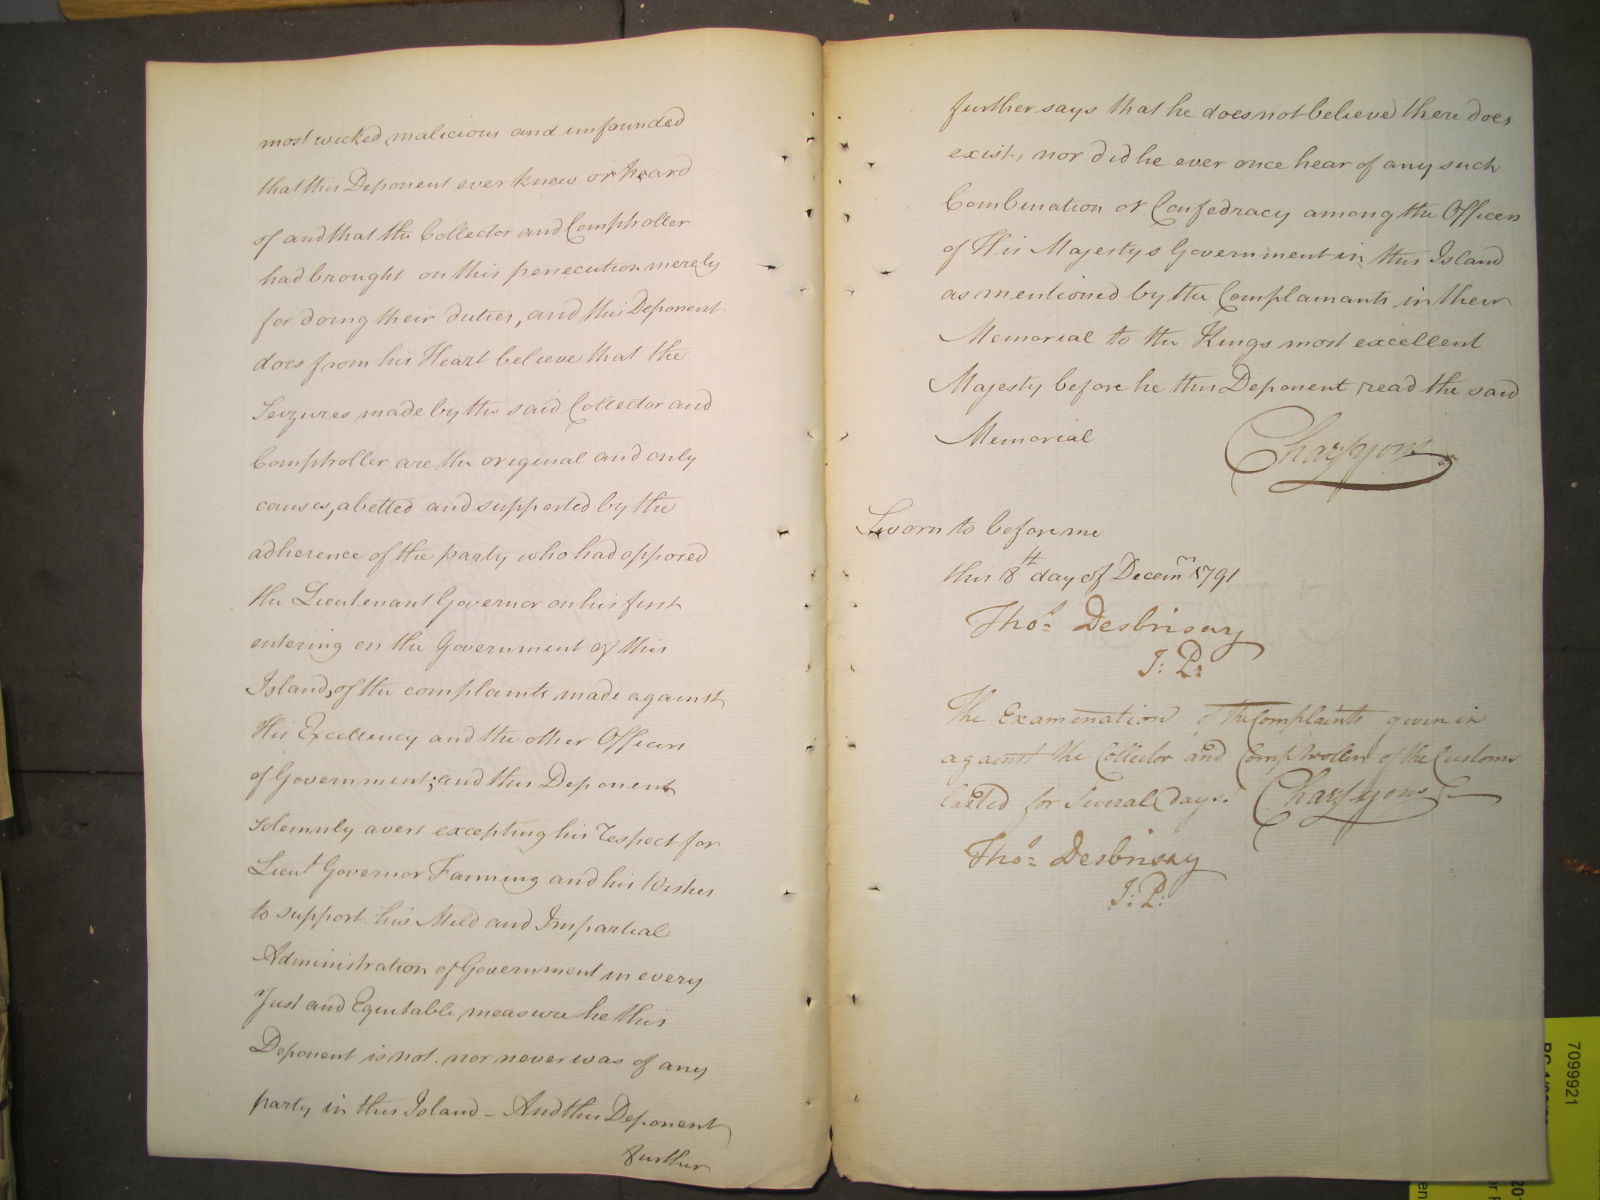 most wicked malicious and unfounded
that this Deponent ever knew or heard
of and that the Collector and Comptroller
had brought on this persecution merely
for doing their duties, and this Deponent
does from his Heart believe that the
Seizures made by the said Collector and
Comptroller are the original and only
causes, abetted and supported by the
adherence of the party who had opposed
the Lieutenant Governor on his first
entering on the Government of this
Island, of the complaints made against
His Excellency and the other Officers
of Government; and this Deponent
Solemnly avers excepting his respect for
Lieut Governor Fanning and his Wishes
to support his Mild and Impartial
Administration of Government in every
Just and Equitable measure he this
Deponent is not nor never was of any
party in this Island - And this Deponent
further
further says that he does not believe there does
exist, nor did he ever once hear of any such
Combination or Confedracy among the Officers
of His Majestys Government in this Island
as mentioned by the Complainants in their
Memorial to the Kings most excellent
Majesty before he this Deponent read the said
Memorial
Chas Lyons
Sworn to before me
this 8th day of Decemr 1791
Thos Desbrisay
J: P:
The Examination of the Complaints given in
against the Collector and Comptroller of the Customs
lasted for Several days. Chas Lyons
Thos Desbrisay
J: P:
7099921